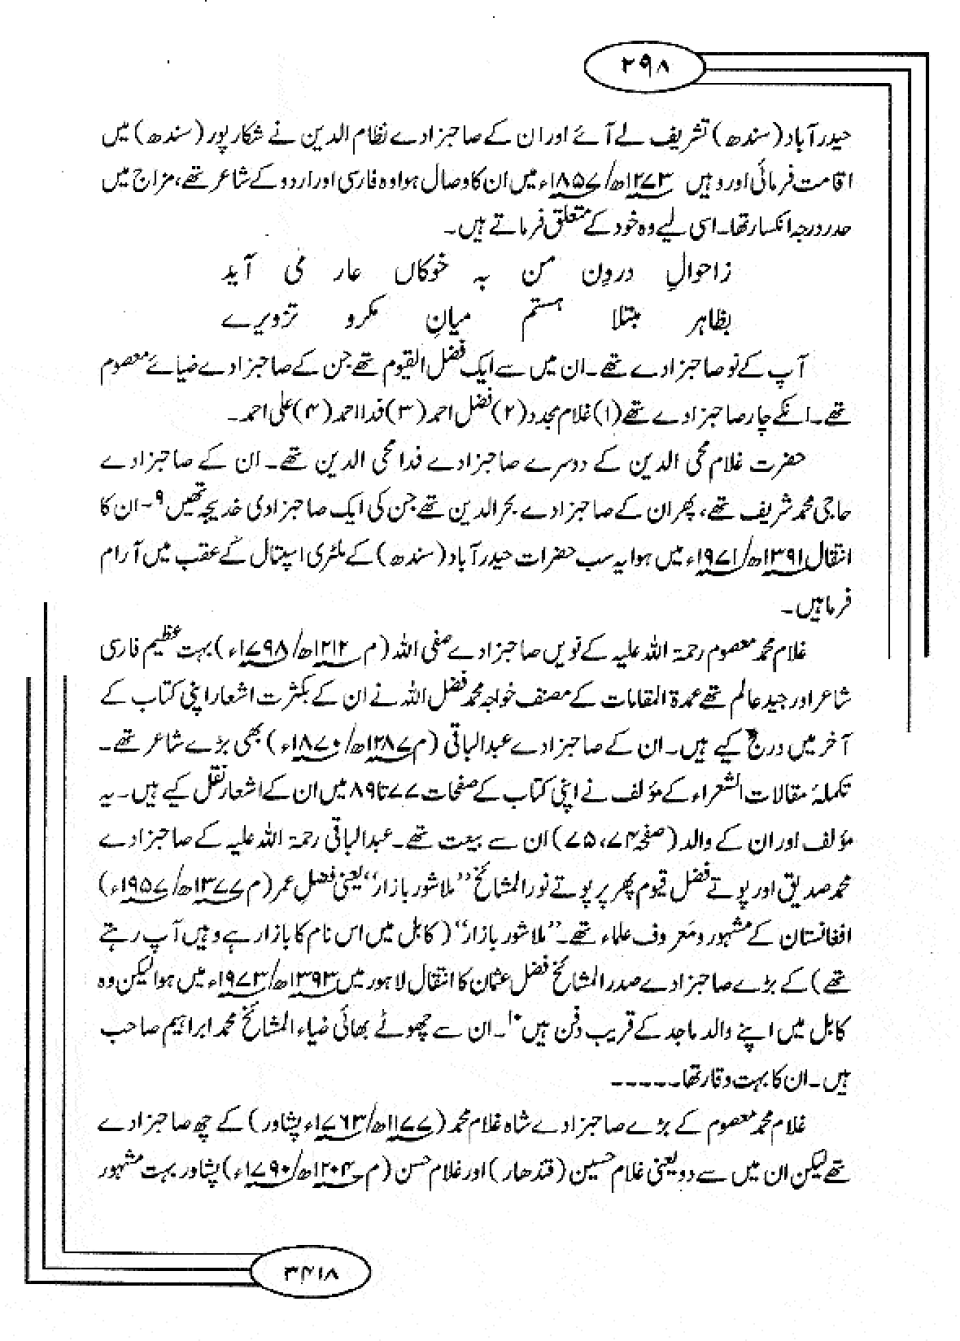 ۲۹۸
حیدر آباد (سندھ) تشریف لے آئے اور ان کے صاحبزادے نظام الدین نے شکار پور (سندھ) میں
اقامت فرمائی اور وہیں ۱۲۷۳ھ/۱۸۵۷ء میں ان کا وصال ہوا وہ فارسی اور اردو کے شاعر تھے، مزاج میں
حد درجہ انکسار تھا۔ اسی لیے وہ خود کے متعلق فرماتے ہیں۔
زاحوالِ درونِ من بہ خوکاں عار می آید
بظاہر مبتلا ہستم میانِ مکر و تزویرے
آپ کے نو صاحبزادے تھے۔ ان میں سے ایک فضل القیوم تھے جن کے صاحبزادے ضیائے معصوم
تھے۔ انکے چار صاحبزادے تھے (۱) غلام مجدد (۲) فضل احمد (۳) فدا احمد (۴) علی احمد۔
حضرت غلام محی الدین کے دوسرے صاحبزادے فدا محی الدین تھے۔ ان کے صاحبزادے
حاجی محمد شریف تھے، پھر ان کے صاحبزادے بحر الدین تھے جن کی ایک صاحبزادی خدیجہ تھیں ۹۔ ان کا
انتقال ۱۳۹۱ھ/۱۹۷۱ء میں ہوا یہ سب حضرات حیدر آباد (سندھ) کے ملٹری اسپتال کے عقب میں آرام
فرما ہیں۔
غلام محمد معصوم رحمۃ اللہ علیہ کے نویں صاحبزادے صفی اللہ (م ۱۲۱۲ھ/۱۷۹۸ء) بہت عظیم فارسی
شاعر اور جید عالم تھے عمدۃ المقامات کے مصنف خواجہ محمد فضل اللہ نے ان کے بکثرت اشعار اپنی کتاب کے
آخر میں درج کیے ہیں۔ ان کے صاحبزادے عبدالباقی (م ۱۲۸۷ھ/۱۸۷۰ء) بھی بڑے شاعر تھے۔
تکملۂ مقالات الشعراء کے مؤلف نے اپنی کتاب کے صفحات ۷۷ تا ۸۹ میں ان کے اشعار نقل کیے ہیں۔ یہ
مؤلف اور ان کے والد (صفحہ ۷۴، ۷۵) ان سے بیعت تھے۔ عبدالباقی رحمۃ اللہ علیہ کے صاحبزادے
محمد صدیق اور پوتے فضل قیوم پھر پر پوتے نور المشائخ ”ملا شور بازار“ یعنی فضل عمر (م ۱۳۷۷ھ/۱۹۵۷ء)
افغانستان کے مشہور و معروف علماء تھے۔ ”ملا شور بازار“ (کابل میں اس نام کا بازار ہے وہیں آپ رہتے
تھے) کے بڑے صاحبزادے صدر المشائخ فضل عثمان کا انتقال لاہور میں ۱۳۹۳ھ/۱۹۷۳ء میں ہوا لیکن وہ
کابل میں اپنے والد ماجد کے قریب دفن ہیں ۱۰۔ ان سے چھوٹے بھائی ضیاء المشائخ محمد ابراہیم صاحب
ہیں۔ ان کا بہت وقار تھا۔۔۔۔۔۔
غلام محمد معصوم کے بڑے صاحبزادے شاہ غلام محمد (۱۱۷۷ھ/۱۷۶۳ء پشاور) کے چھ صاحبزادے
تھے لیکن ان میں سے دو یعنی غلام حسین (قندھار) اور غلام حسن (م ۱۲۰۴ھ/۱۷۹۰ء) پشاور بہت مشہور
۳۴۱۸